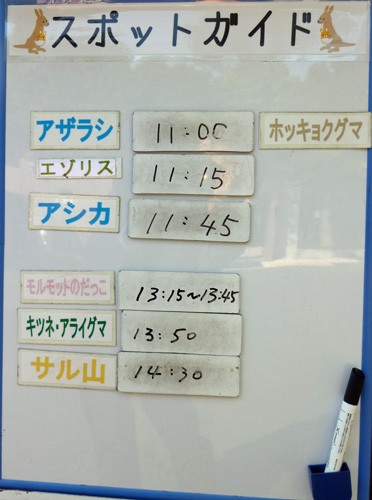 スポットガイド
アザラシ 11:00 ホッキョクグマ
エゾリス 11:15
アシカ 11:45
モルモットのだっこ 13:15~13:45
キツネ・アライグマ 13:50
サル山 14:30